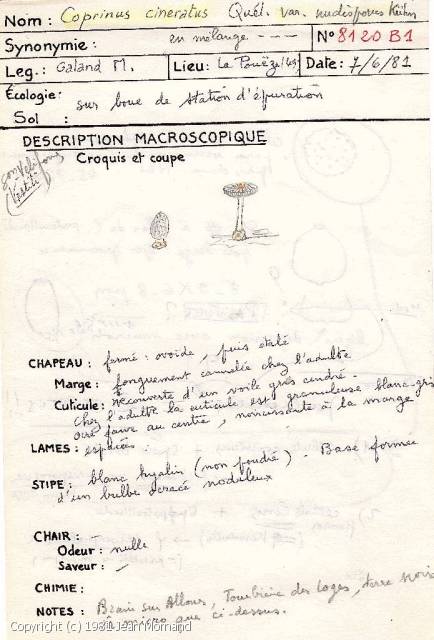 Nom : Coprinus cineratus Quél. var. nudisporus Kühn
Synonymie : en mélange - - - Nº 8120 B1
Leg.: Galand M. Lieu: La Pouëze (49) Date: 7/6/81
Écologie: sur boue de station d'épuration
Sol :
DESCRIPTION MACROSCOPIQUE
Croquis et coupe
Vestiti
CHAPEAU : fermé : ovoïde, puis étalé
Marge : longuement cannelée chez l'adulte
Cuticule: recouverte d'un voile gris cendré.
Chez l'adulte la cuticule est granuleuse blanc-gris
ocre fauve au centre, noircissante à la marge
LAMES : espacées
STIPE : blanc hyalin (non poudré). Base formée
d'un bulbe noduleux
CHAIR :
Odeur : nulle
Saveur : -
CHIMIE :
NOTES : Brain sur Allonnes, Tourbière des Loges, terre noire
micro que ci-dessus.
Copyright (c) 1981 Jean Mornand